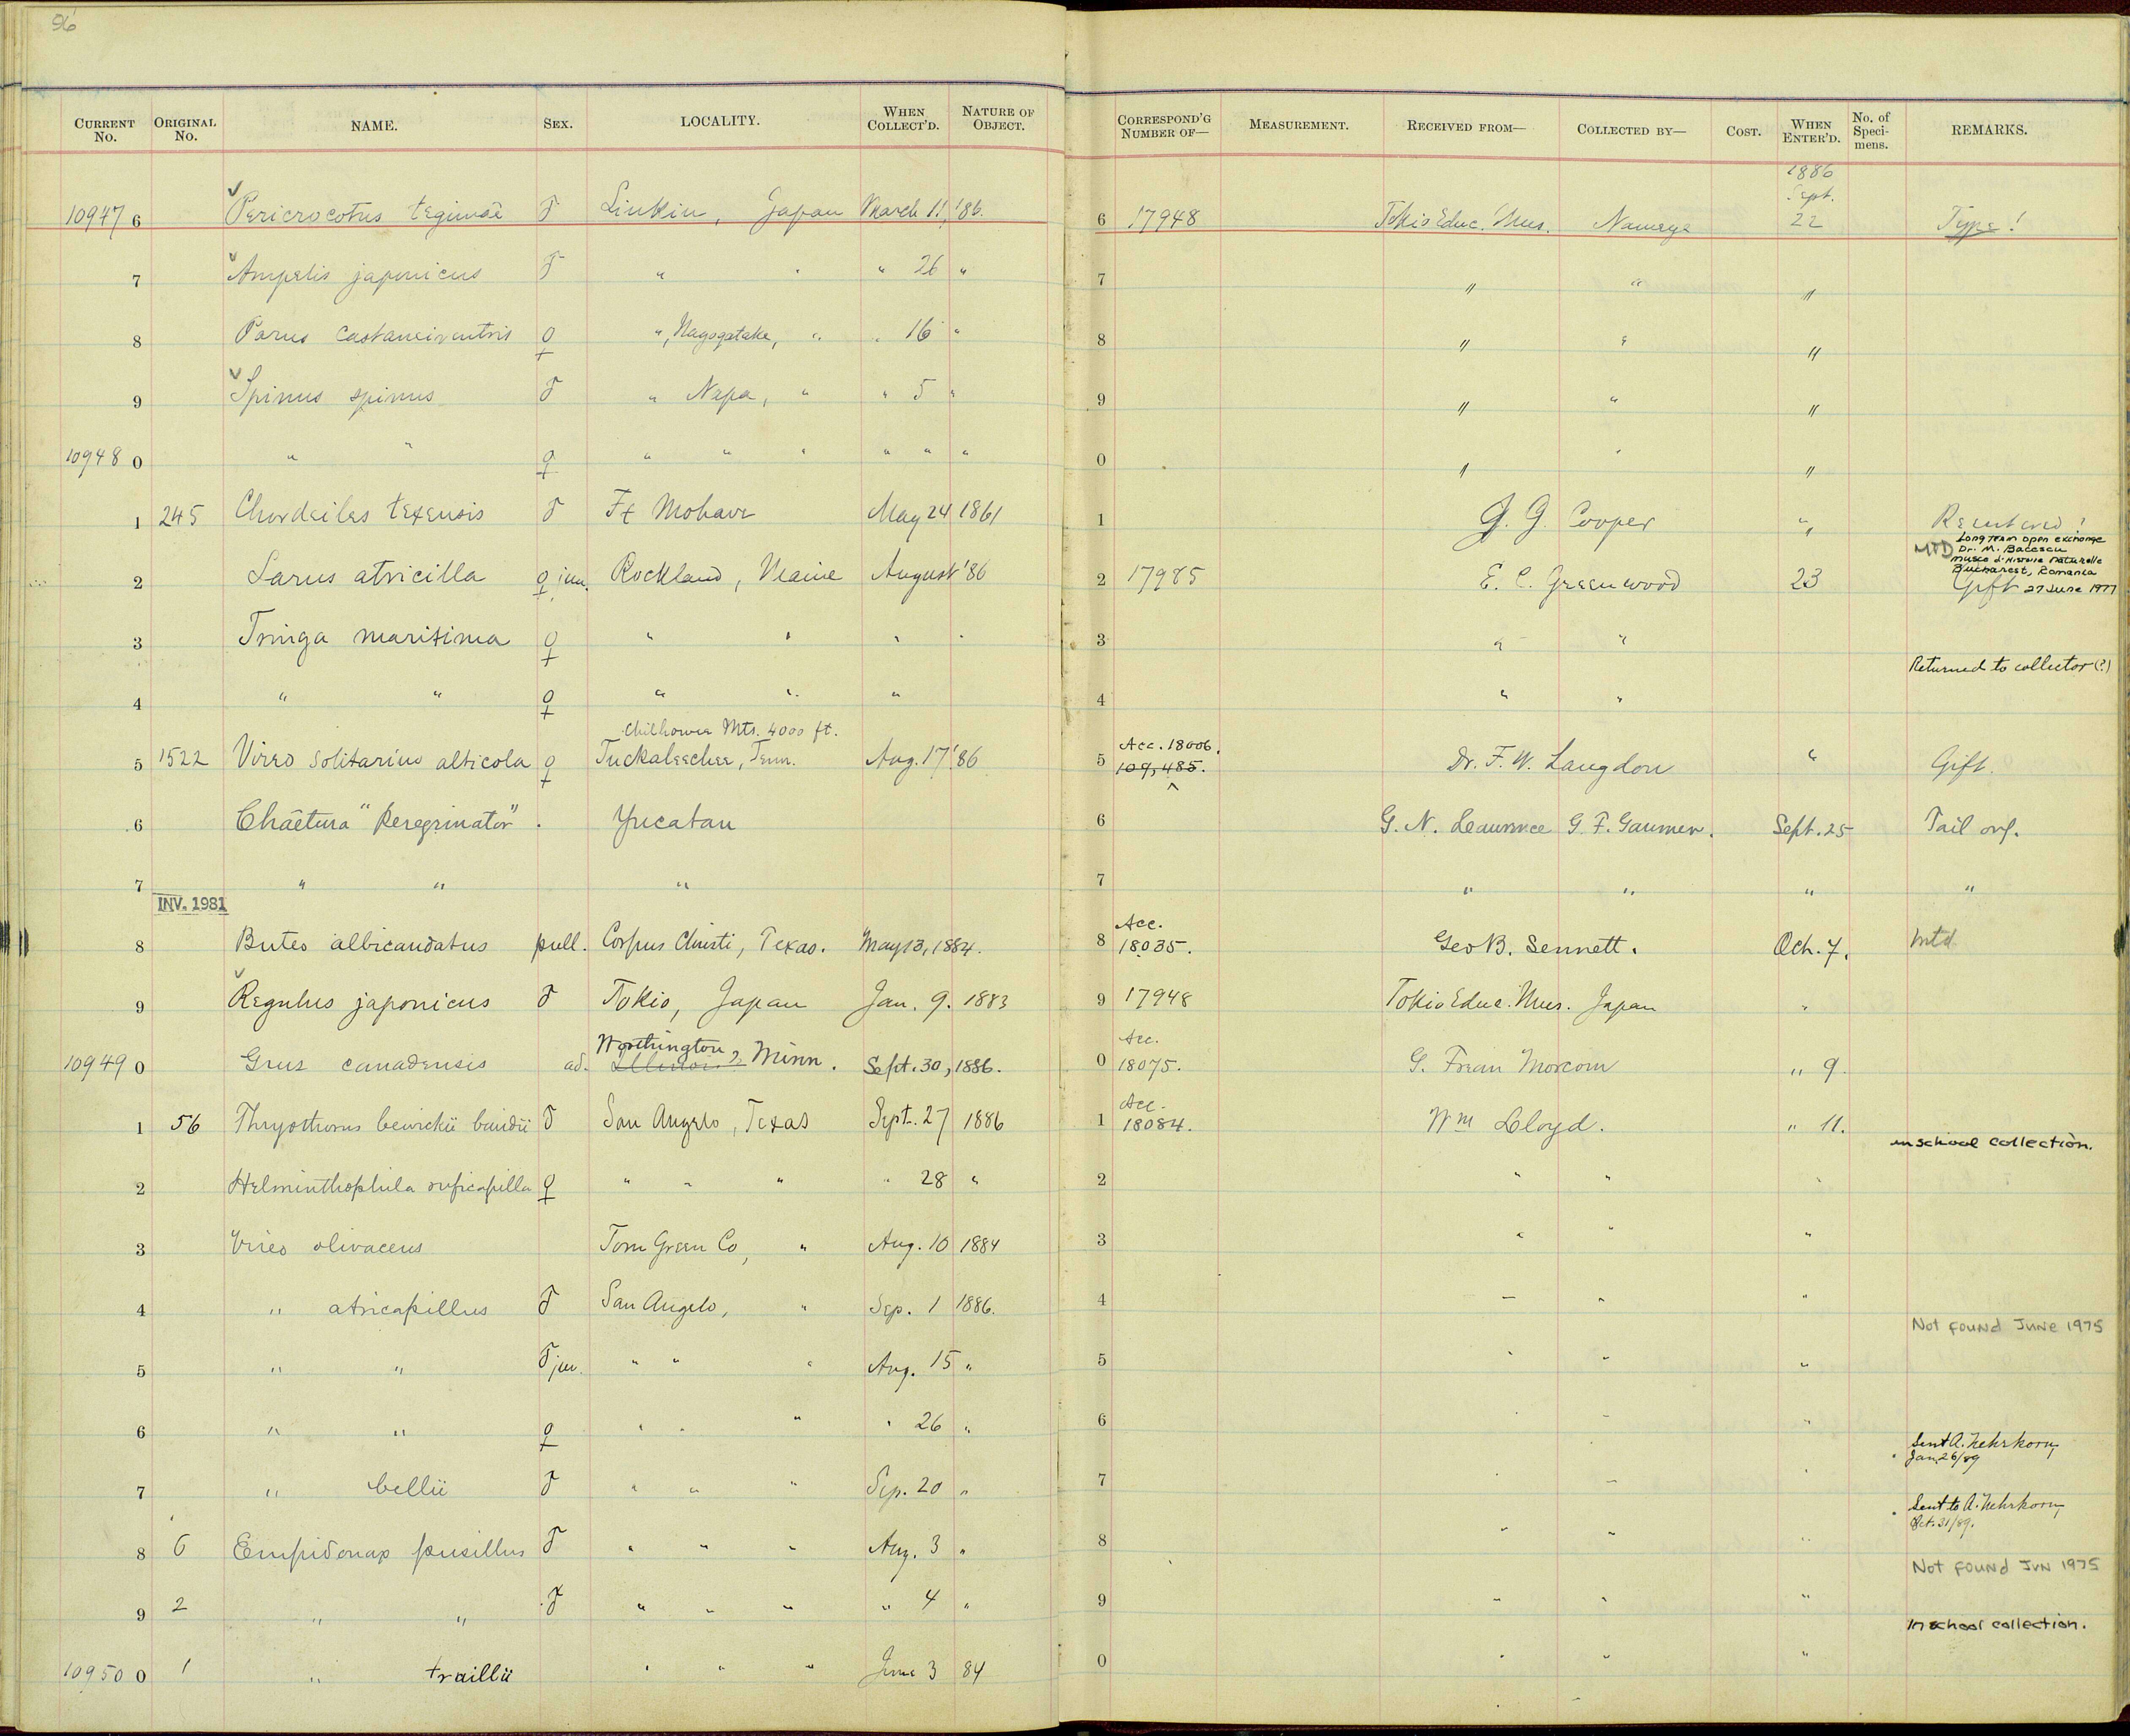 96
CURRENT No. ORIGINAL No. NAME. SEX. LOCALITY. WHEN COLLECT'D. NATURE OF OBJECT. CORRESPOND'G NUMBER OF— MEASUREMENT. RECEIVED FROM— COLLECTED BY— COST. WHEN ENTER'D. No. of Specimens. REMARKS.
1886
Sept.
10947 6 Pericrocotus tegimae ♂ Liukiu, Japan March 11, '86. 6 17948 Tokio Educ. Mus. Namaye 22 Type!
7 Ampelis japonicus ♂ " " " 26 " 7 " " "
8 Parus castaneiventris ♀ ", Nagogatake, " " 16 " 8 " " "
9 Spinus spinus ♂ " Napa, " " 5 " 9 " " "
10948 0 " " ♀ " " " " " " 0 " " "
1 245 Chordeiles texensis ♂ Ft Mohave May 24 1861 1 J. G. Cooper " Reentered!
Long term open exchange
MTD Dr. M. Bacescu
Musee d'Histoire Naturelle
Bucharest, Romania
2 Larus atricilla ♀ juv. Rockland, Maine August '86 2 17985 E. C. Greenwood 23 Gift 27 June 1977
3 Tringa maritima ♀ " " " " 3 " "
Returned to collector (?)
4 " " ♀ " " " 4 " "
Chilhowee Mts. 4000 ft.
Acc. 18006.
5 1522 Vireo solitarius alticola ♀ Tuckaleechee, Tenn. Aug. 17 '86 5 109,485. Dr. F. W. Langdon " Gift.
6 Chaetura "peregrinator" . Yucatan 6 G. N. Lawrence G. F. Gaumer. Sept. 25 Tail only.
7 " " " 7 " " " "
INV. 1981
Acc.
8 Buteo albicaudatus pull. Corpus Christi, Texas. May 13, 1884. 8 18035. Geo B. Sennett. Oct. 7. mtd
9 Regulus japonicus ♂ Tokio, Japan Jan. 9. 1883 9 17948 Tokio Educ. Mus. Japan "
Worthington
Acc.
10949 0 Grus canadensis ad. Illinois? Minn. Sept. 30, 1886. 0 18075. G. Frean Morcom " 9.
Acc.
1 56 Thryothorus bewickii bairdii ♂ San Angelo, Texas Sept. 27 1886 1 18084. Wm Lloyd. " 11.
in school collection.
2 Helminthophila ruficapilla ♀ " " " " 28 " 2 " " "
3 Vireo olivaceus Tom Green Co, " Aug. 10 1884 3 " " "
4 " atricapillus ♂ San Angelo, " Sep. 1 1886. 4 " " "
Not found June 1975
5 " " ♂ juv. " " " Aug. 15 " 5 " " "
6 " " ♀ " " " " 26 " 6 " " "
Sent A. Nehrkorn,
Jan. 26/89
7 " bellii ♂ " " " Sep. 20 " 7 " " "
Sent to A. Nehrkorn,
Oct. 31/89.
8 6 Empidonax pusillus ♂ " " " Aug. 3 " 8 " " "
Not found Jun 1975
9 2 " " ♂ " " " " 4 " 9 " " "
In school collection.
10950 0 1 " traillii " " " June 3 84 0 " " "